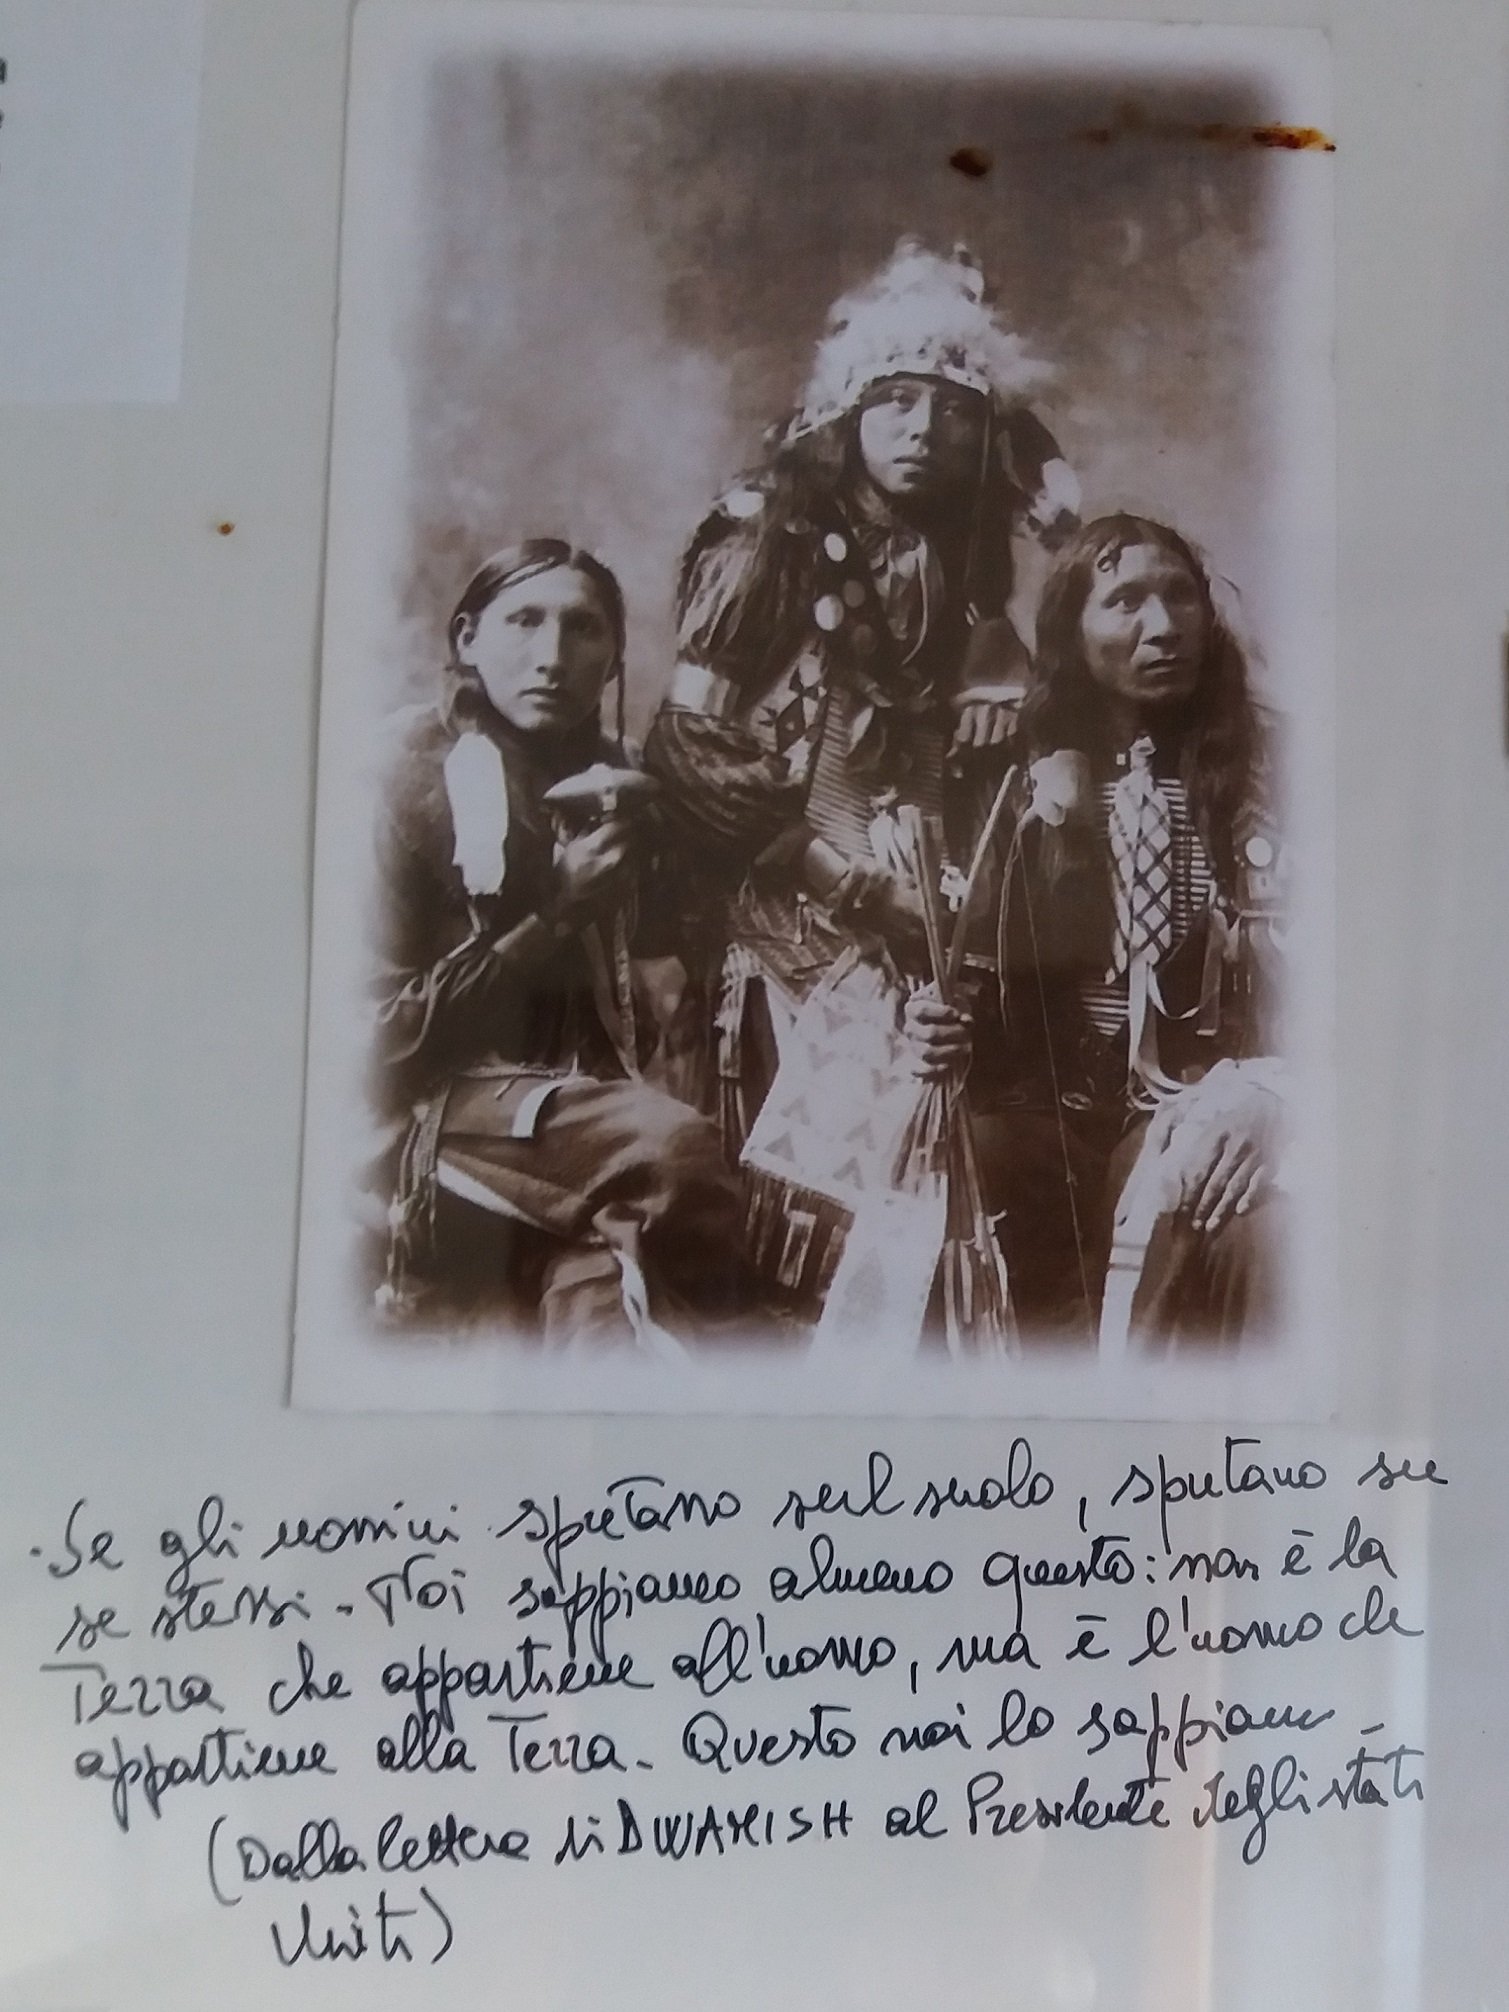 . Se gli uomini sputano sul suolo, sputano su
se stessi - Noi sappiamo almeno questo: non è la
Terra che appartiene all'uomo, ma è l'uomo che
appartiene alla Terra - Questo noi lo sappiamo -
(Dalla lettera di DWAMISH al Presidente degli stati
Uniti)